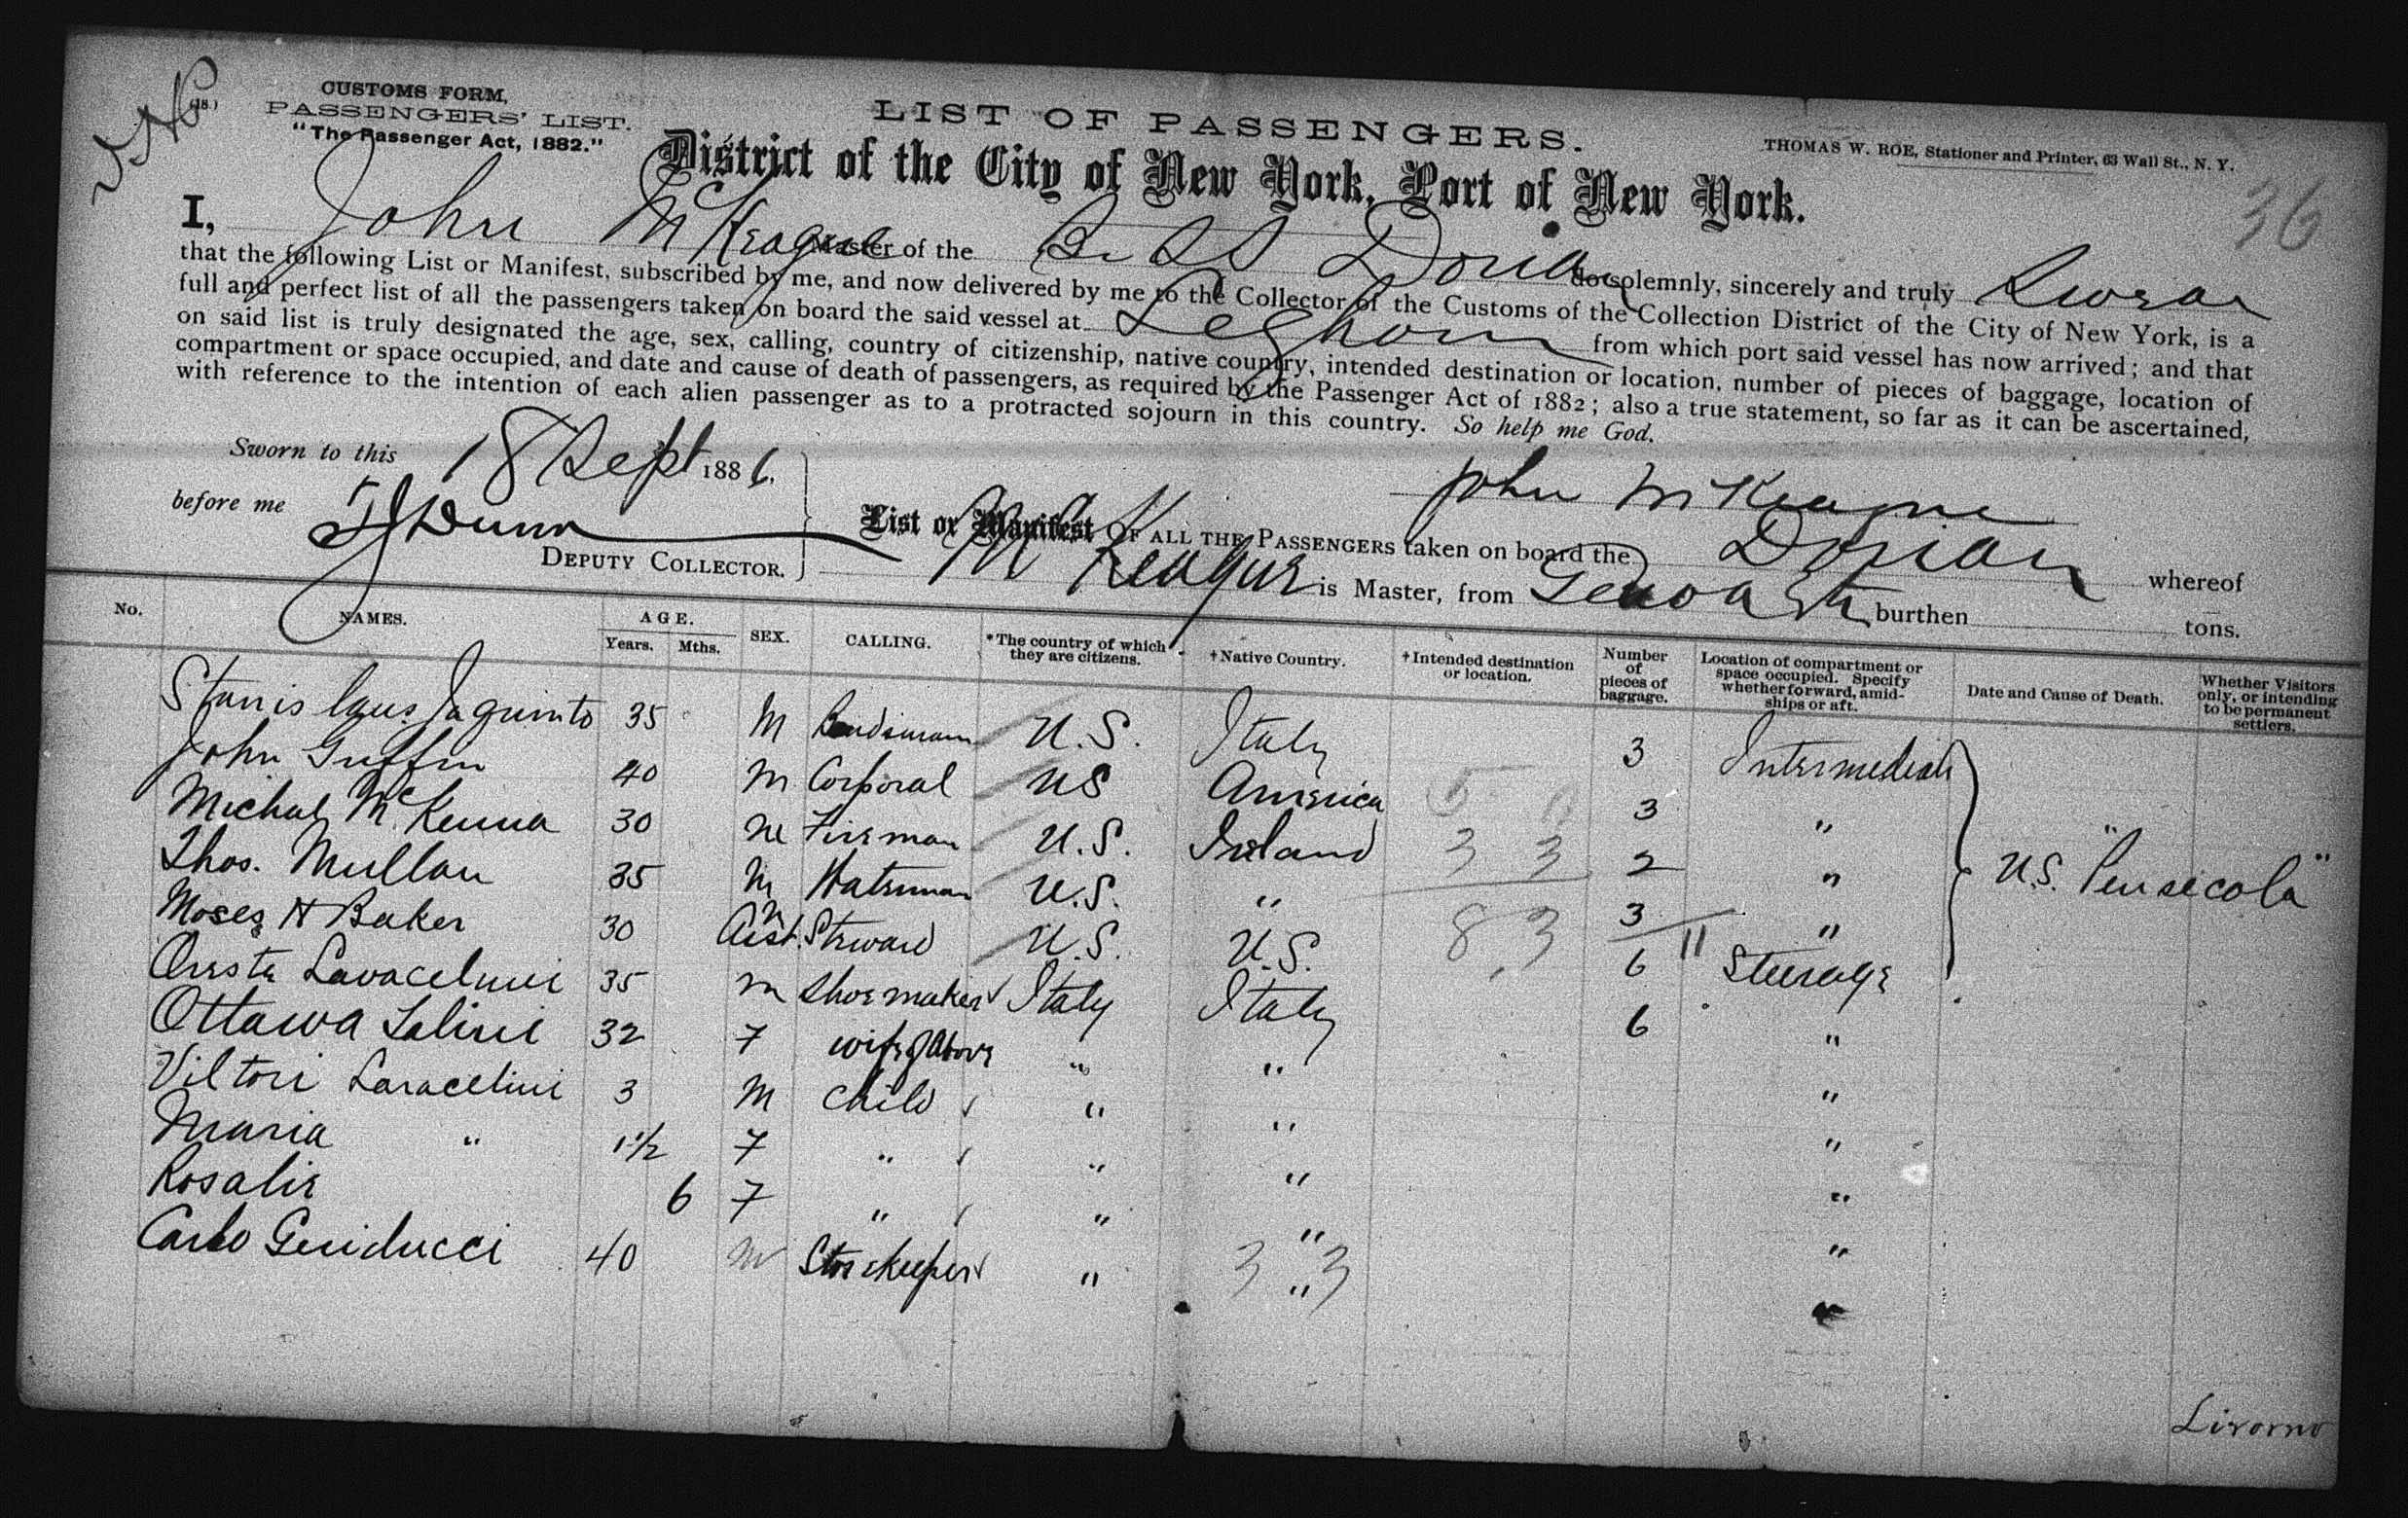 (18.)
CUSTOMS FORM,
PASSENGERS' LIST.
"The Passenger Act, 1882."
LIST OF PASSENGERS.
THOMAS W. ROE, Stationer and Printer, 63 Wall St., N. Y.
36
District of the City of New York, Port of New York.
I, John McKeague Master of the Br SS Dorian do solemnly, sincerely and truly Swear
that the following List or Manifest, subscribed by me, and now delivered by me to the Collector of the Customs of the Collection District of the City of New York, is a
full and perfect list of all the passengers taken on board the said vessel at Leghorn from which port said vessel has now arrived; and that
on said list is truly designated the age, sex, calling, country of citizenship, native country, intended destination or location, number of pieces of baggage, location of
compartment or space occupied, and date and cause of death of passengers, as required by the Passenger Act of 1882; also a true statement, so far as it can be ascertained,
with reference to the intention of each alien passenger as to a protracted sojourn in this country. So help me God.
Sworn to this 18 Sept 1886.
John McKeague
before me Dunn
DEPUTY COLLECTOR.
List or Manifest OF ALL THE PASSENGERS taken on board the Dorian whereof
McKeague is Master, from Genoa burthen tons.
No. NAMES. AGE. Years. Mths. SEX. CALLING. *The country of which they are citizens. †Native Country. †Intended destination or location. Number of pieces of baggage. Location of compartment or space occupied. Specify whether forward, amidships or aft. Date and Cause of Death. Whether Visitors only, or intending to be permanent settlers.
Stanislaus Jaquinto 35 M Bandsman U.S. Italy 3 Intermediate
John Griffin 40 M Corporal US America 3 "
Michael McKenna 30 M Fireman U.S. Ireland 2 "
Thos. Mullan 35 M U.S. " 3 "
U.S. "Pensecola"
Moses H Baker 30 M Asst. Steward U.S. U.S.
5
3 3
8 3
11
Oreste 35 m Shoemaker Italy Italy 6 Steerage
Ottawa Salini 32 F wife of Above " " 6 "
Vittori 3 M Child " " "
Maria " 1 1/2 F " " " "
Rosalie 6 F " " " "
Carlo Guiducci 40 m Storekeeper " " "
3 3
Livorno